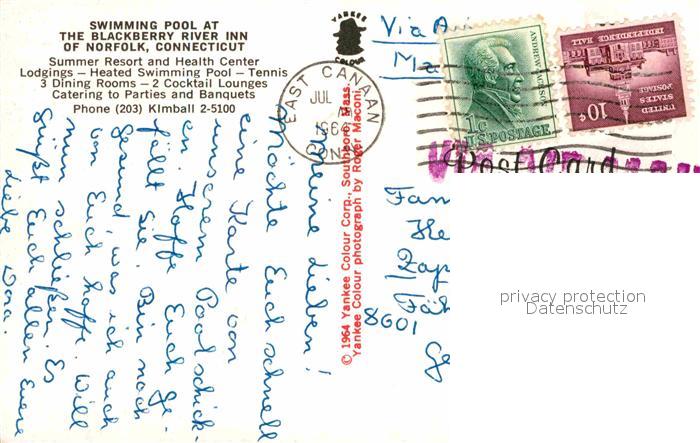 SWIMMING POOL AT
THE BLACKBERRY RIVER INN
OF NORFOLK, CONNECTICUT
Summer Resort and Health Center
Lodgings — Heated Swimming Pool — Tennis
3 Dining Rooms — 2 Cocktail Lounges
Catering to Parties and Banquets
Phone (203) KImball 2-5100
YANKEE
COLOUR
EAST CANAAN
JUL
CONN
© 1964 Yankee Colour Corp., Southboro, Mass.
Yankee Colour photograph by Roger Maconi.
Via
Ma
ANDREW JACKSON
1¢
U.S. POSTAGE
INDEPENDENCE HALL
10¢
UNITED STATES POSTAGE
Post Card
Meine Lieben!
Möchte Euch schnell
eine Karte von
unserem Pool schick-
en. Hoffe Euch ge-
fällt sie. Bin noch
Gesund was ich auch
von Euch hoffe. Will
nun schließen. Es
grüßt Euch allen Euere
liebe Dora.
Fam
He
Zap
Fäh
8601
privacy protection
Datenschutz